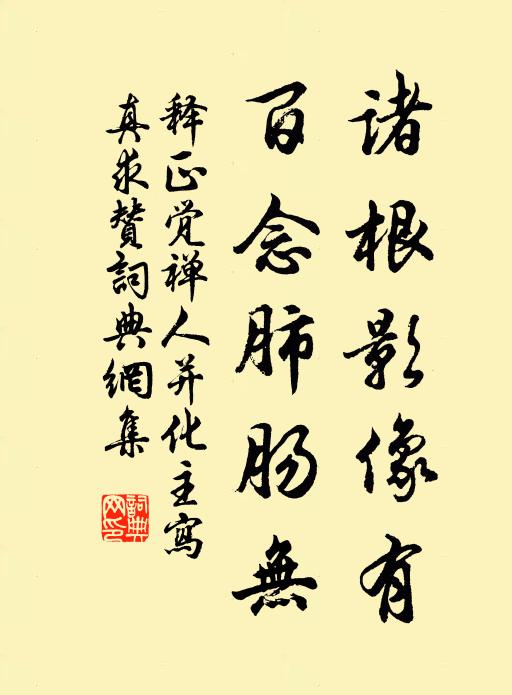 诸根影像有
百念肺肠無
释正觉禅人并化主寫
真求赞詞典網集
詞典網印